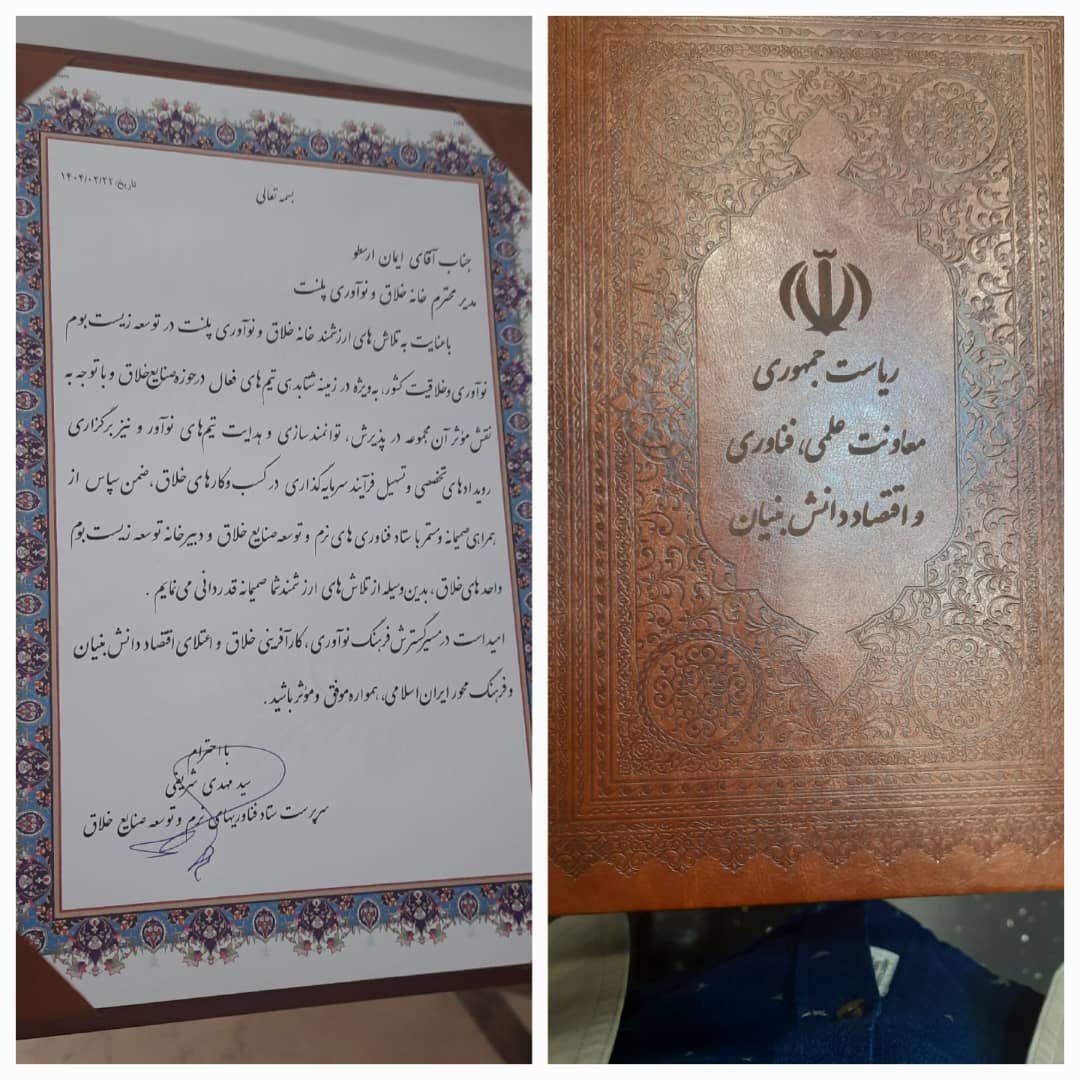 تاریخ: ۱۴۰۴/۰۲/۲۲
بسمه تعالی
جناب آقای ایمان ارسطو
مدیر محترم خانه خلاق و نوآوری پلنت
باعنایت به تلاش های ارزشمند خانه خلاق و نوآوری پلنت در توسعه زیست بوم
نوآوری و خلاقیت کشور، به ویژه در زمینه شتابدهی تیم های فعال درحوزه صنایع خلاق و با توجه به
نقش مؤثر آن مجموعه در پذیرش، توانمندسازی و هدایت تیم های نوآور و نیز برگزاری
رویدادهای تخصصی و تسهیل فرآیند سرمایه گذاری در کسب و کارهای خلاق، ضمن سپاس از
همراهی صمیمانه و مستمر با ستاد فناوری های نرم و توسعه صنایع خلاق و دبیرخانه توسعه زیست بوم
واحدهای خلاق، بدین وسیله از تلاش های ارزشمند شما صمیمانه قدردانی می نمایم .
امید است در مسیر گسترش فرهنگ نوآوری، کارآفرینی خلاق و اعتلای اقتصاد دانش بنیان
و فرهنگ محور ایران اسلامی، همواره موفق و مؤثر باشید .
با احترام
سید مهدی شریفی
سرپرست ستاد فناوریهای نرم و توسعه صنایع خلاق
ریاست جمهوری
معاونت علمی، فناوری
و اقتصاد دانش بنیان